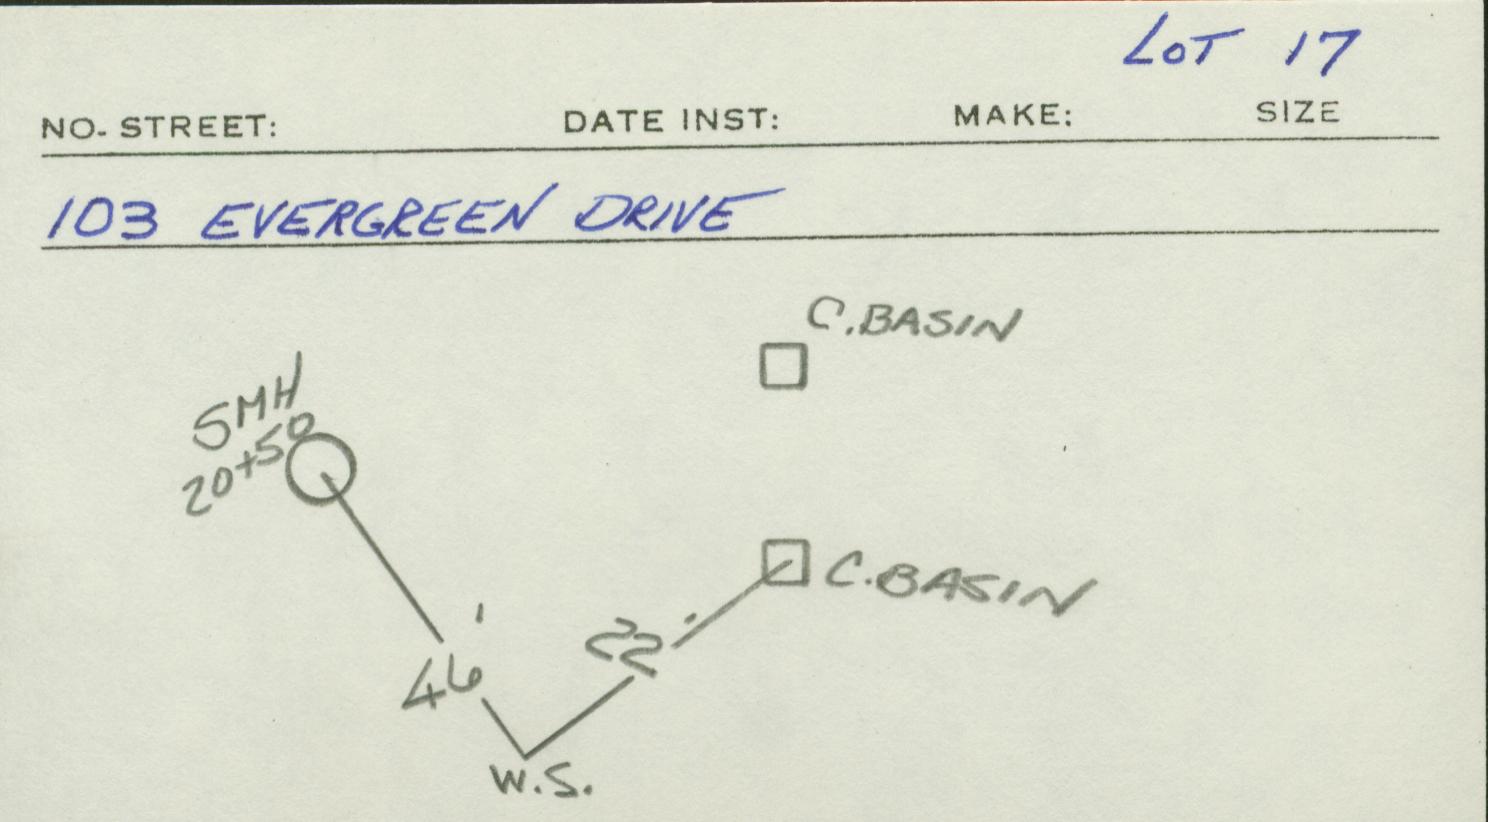 LOT 17
NO. STREET: DATE INST: MAKE: SIZE
103 EVERGREEN DRIVE
C. BASIN
SMH
20+50
C. BASIN
46'
22'
W.S.